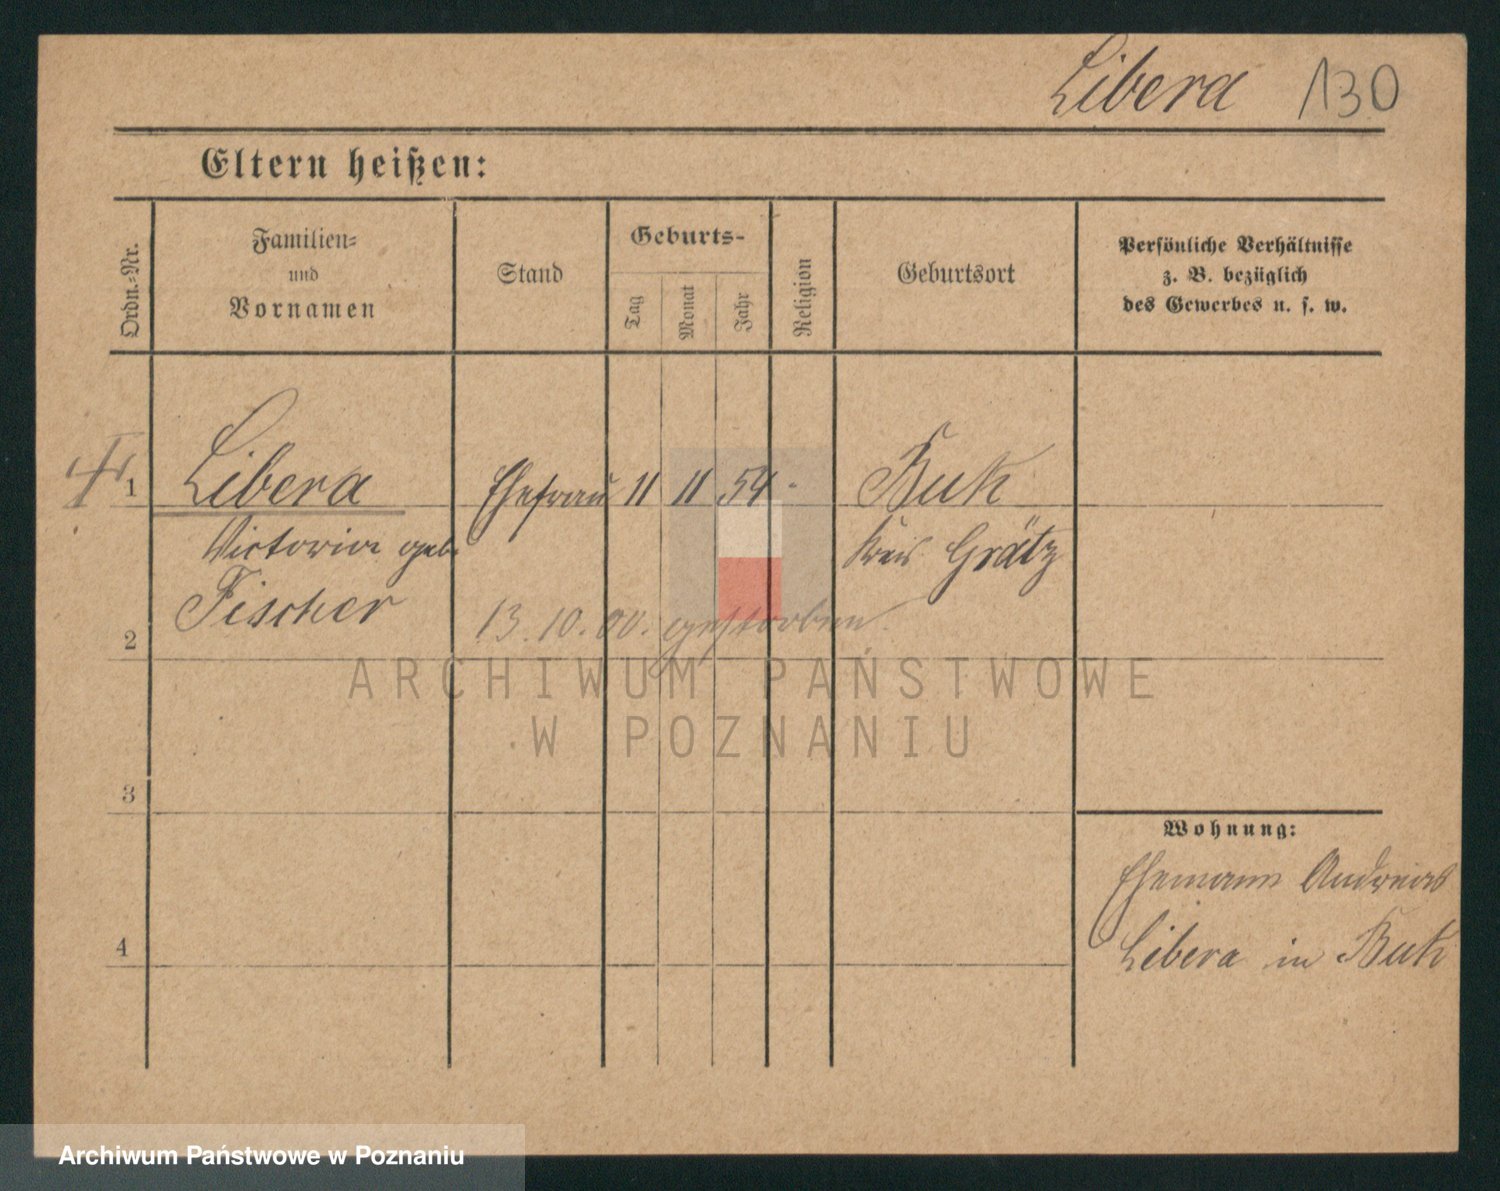 Libera 130
Eltern heißen:
Ordn.-Nr.
Familien-
und
Vornamen
Stand
Geburts-
Tag
Monat
Jahr
Religion
Geburtsort
Persönliche Verhältnisse
z. B. bezüglich
des Gewerbes u. s. w.
1 Libera Ehefrau 11 11 54 - Buk
Victoria geb. Kreis Grätz
Fischer
2 13.10.00. gestorben.
ARCHIWUM PAŃSTWOWE
W POZNANIU
3
Wohnung:
Ehemann Andreas
4 Libera in Buk
Archiwum Państwowe w Poznaniu